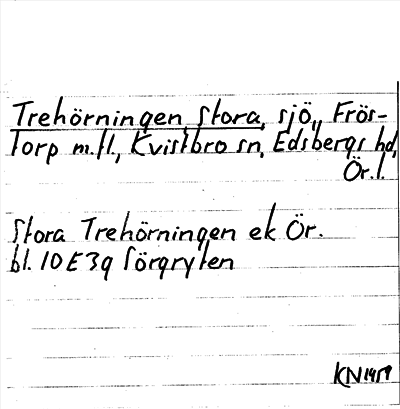 Trehörningen, Stora, sjö, Frös-
torp m.fl., Kvistbro sn, Edsbergs hd,
Ör.l.
Stora Trehörningen ek Ör.
bl. 10E3g Sörgryten